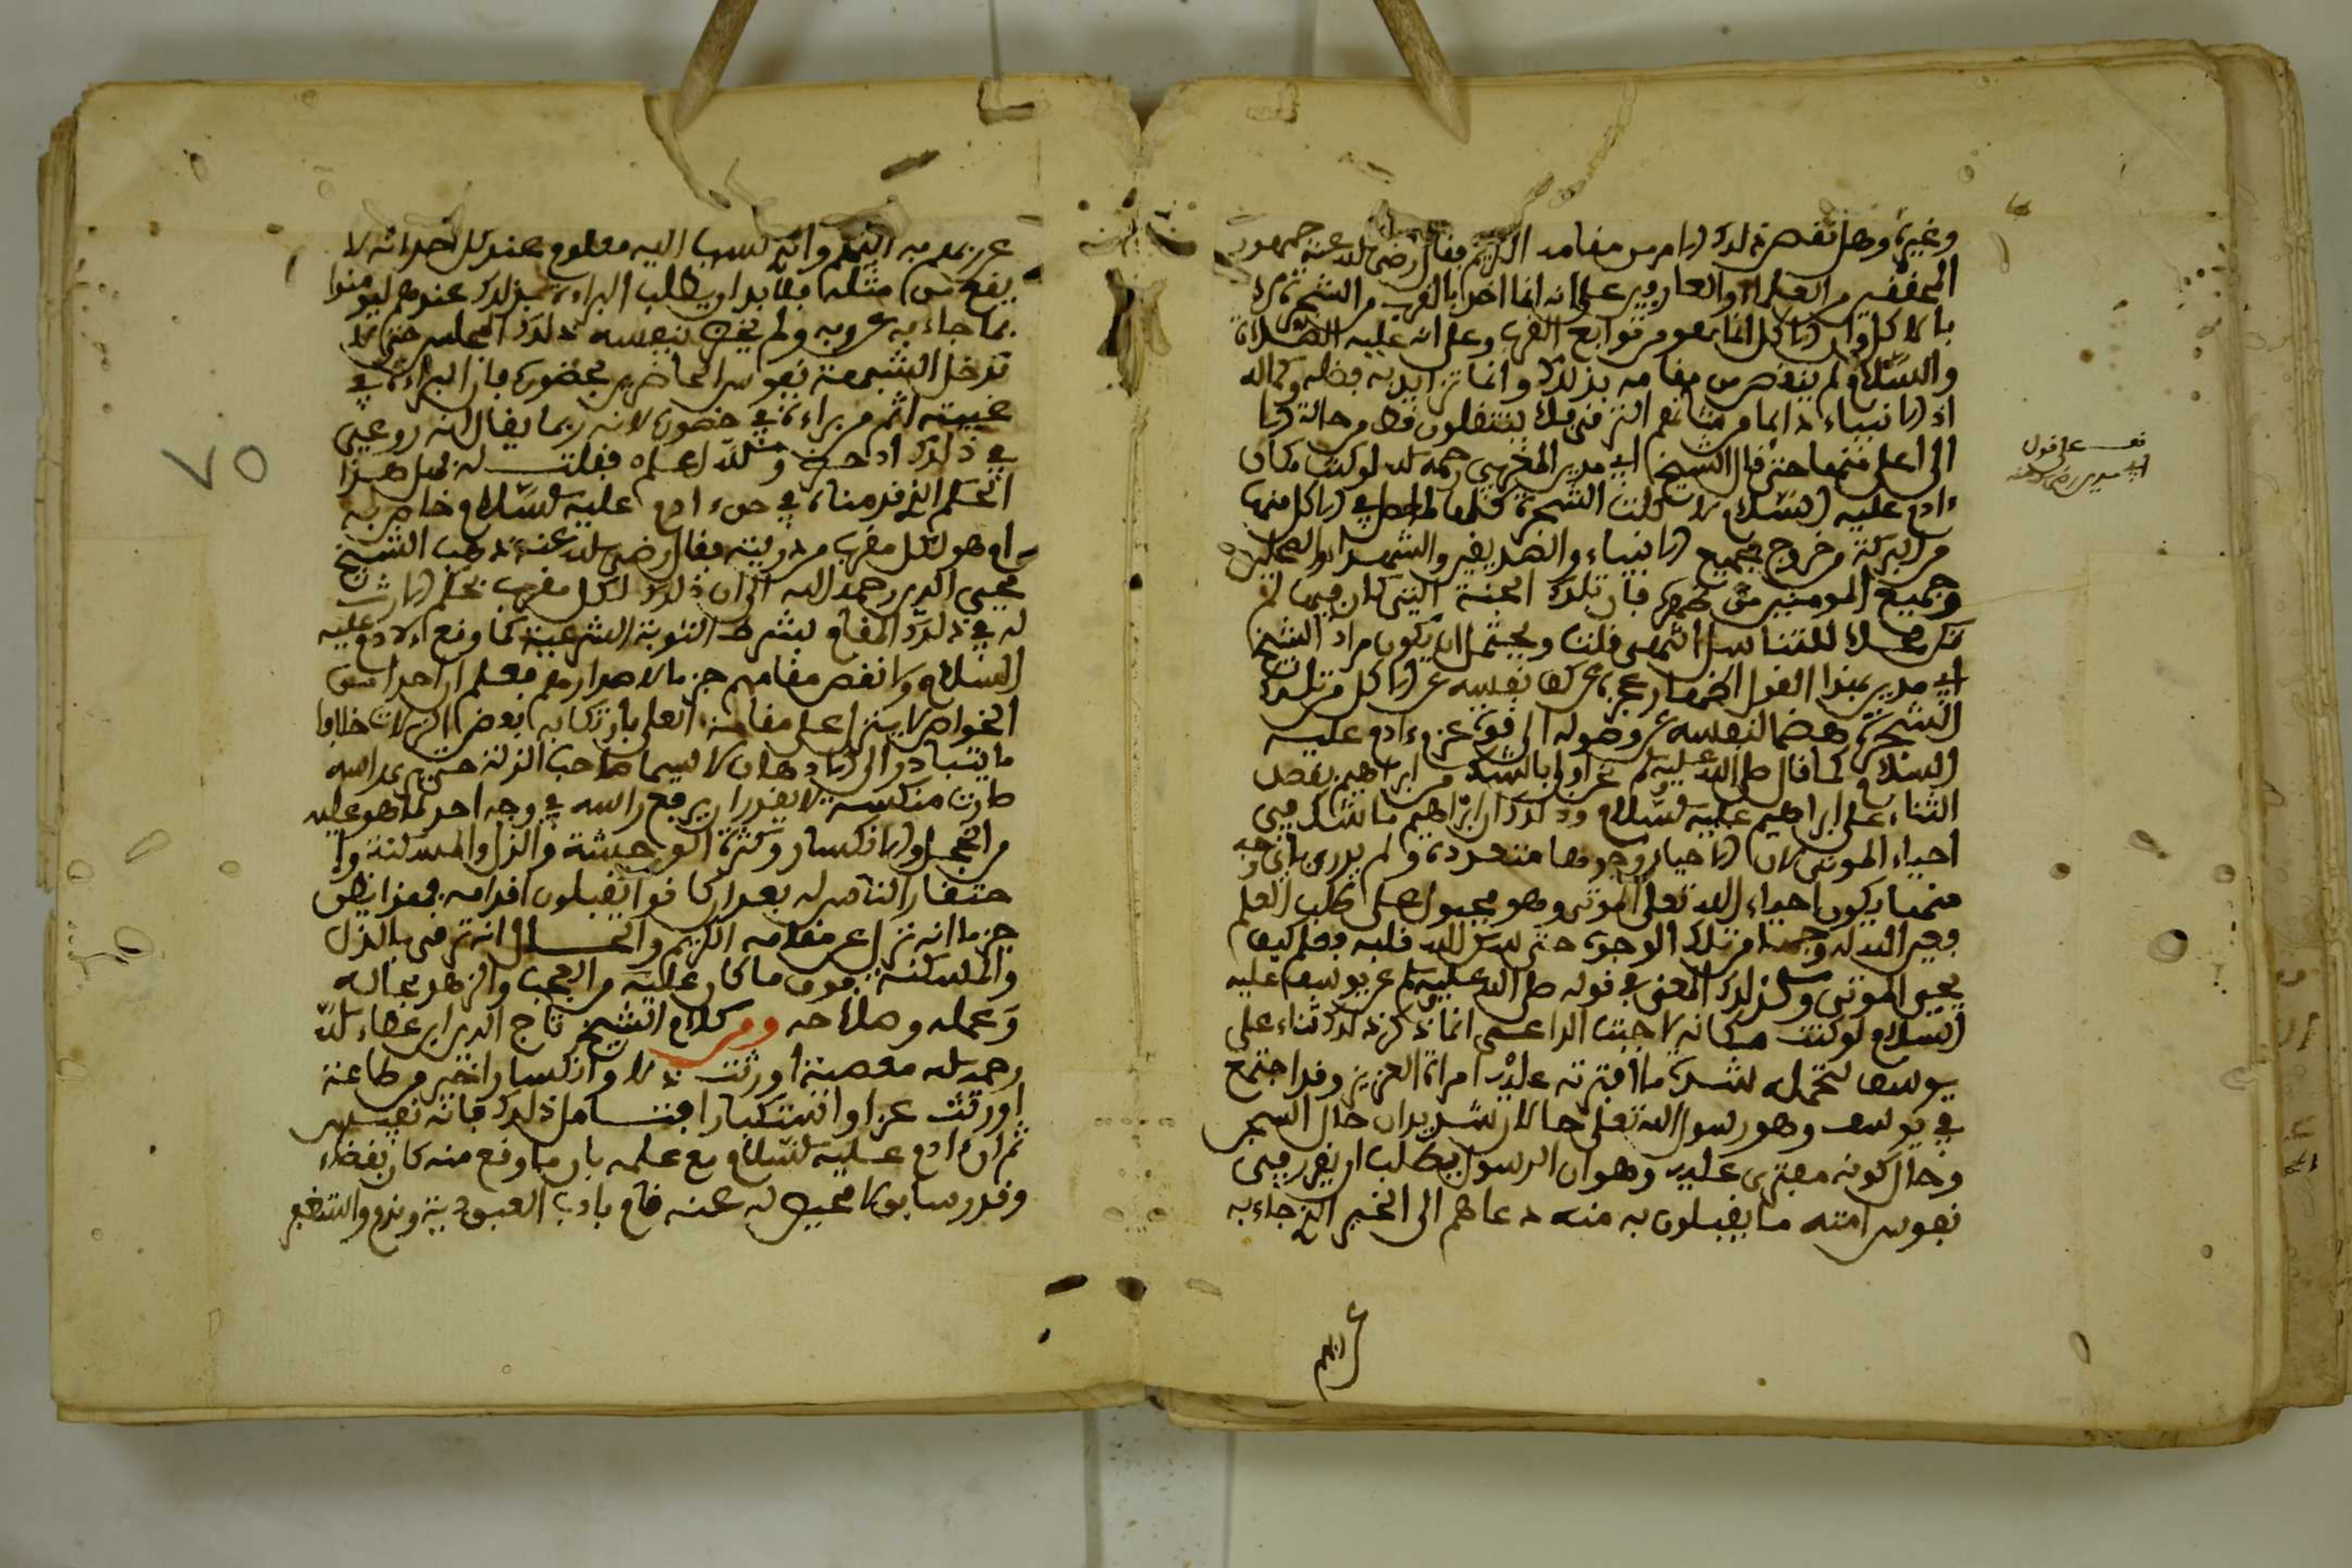 وغيره وهل نقص ذلك الامر من مقامه الكريم فقال رضي الله عنه جمهور
المحققين من العلماء والعارفين على انه انما اخذ بالقرب من الشجرة لا
بالاكل وان الاكل انما هو من توابع القرب وعلى انه عليه الصلاة
والسلام لم ينقص من مقامه بذلك وانما تزايد به فضله وكماله
اذ الانبياء دائما من شانهم الترقي فلا ينتقلون قط من حالة الا
الى اعلى منها حتى قال الشيخ ابي مدين المغربي رحمه الله لو كنت مكان
ءادم عليه السلام لاكلت الشجرة كلها لما حصل في الاكل منها
من البركة وخروج جميع الانبياء والصديقين والشهداء والصالحين
وجميع المومنين من ظهره فان تلك الجنة التي كان فيها لم
تكن محلا للتناسل انتهى قلت ويحتمل ان يكون مراد الشيخ
ابي مدين بهذا القول اظهار عجزه عن كف نفسه عن الاكل من تلك
الشجرة هضما لنفسه عن وصوله الى قوة عزم ءادم عليه
السلام كما قال صلى الله عليه وسلم نحن اولى بالشك من ابراهيم بقصد
الثناء على ابراهيم عليه السلام وذلك ان ابراهيم ما شك في
احياء الموتى لان الاحياء وجوهها متعددة ولم يدر باي وجه
منها يكون احياء الله تعلى الموتى وهو مجبول على طلب العلم
فعين الله له وجها من تلك الوجوه حتى سكن الله قلبه فعلم كيف
يحيي الموتى وكذلك المعنى في قوله صلى الله عليه وسلم عن يوسف عليه
السلام لو كنت مكانه لاجبت الداعي انما ذكر ذلك ثناء على
يوسف لتحمله شدة ما افترته عليه امراة العزيز وقد اجتمع
في يوسف وهو رسول الله تعلى حالان شديدان حال السجن
وحال كونه مفترى عليه وهو ان الرسول يطلب ان يقرر في
نفوس امته ما يقبلون به منه دعاءهم الى الخير الذي جاء به
قف على قول
ابي مدين رضي الله عنه
عن ربه
يقع من مثله فلابد ان يطلب البراءة بذلك عندهم ليومنوا
بما جاء به عن ربه ولم يحضر بنفسه ذلك المجلس حتى لا
تدخل الشبهة نفوس الحاضرين بحضوره فان البراءة في
غيبته اتم من براءته في حضوره لانه ربما يقال انه روعي
في ذلك اذ حضر والله اعلم فقلت له فهل هذا
الحكم الذي قدمناه في حق ءادم عليه السلام خاص به
ام هو لكل مقرب من ذريته فقال رضي الله عنه ذهب الشيخ
محيي الدين رحمه الله الى ان ذلك لكل مقرب بحكم الارث
له في ذلك المقام بشرط التوبة الشرعية كما وقع لادم عليه
السلام ولا نقص مقامهم جزما لا صدار معهم فعلم ان احدا من
الخواص لا ينزل على مقامه العلي بارتكابه بعض الزلات خلافا
ما يتبادر الى الاذهان لا سيما صاحب الزلة حتى يرى راسه
صارت منكسة لا يقدر ان يرفع راسه في وجه احد لما هو عليه
من الخجل والانكسار وكثرة الوحشة والذل والمسكنة وا
حتقار الناس له بعد ان كانوا يقبلون اقدامه فهذا يظن
جزما انه نزل عن مقامه الكريم والحال انه ترقى بالذل
والمسكنة فوق ما كان عليه من العجب والزهو بحاله
وعمله وصلاحه ومن كلام الشيخ تاج الدين ابن عطاء الله
رحمه الله معصية اورثت ذلا وانكسارا خير من طاعة
اورثت عزا واستكبارا فتامل ذلك فانه نفيس
ثم ان ءادم عليه السلام مع علمه بان ما وقع منه كان بقضاء
وقدر سابق لا محيد له عنه قام بادب العبودية وندم واستغفر
٧٥